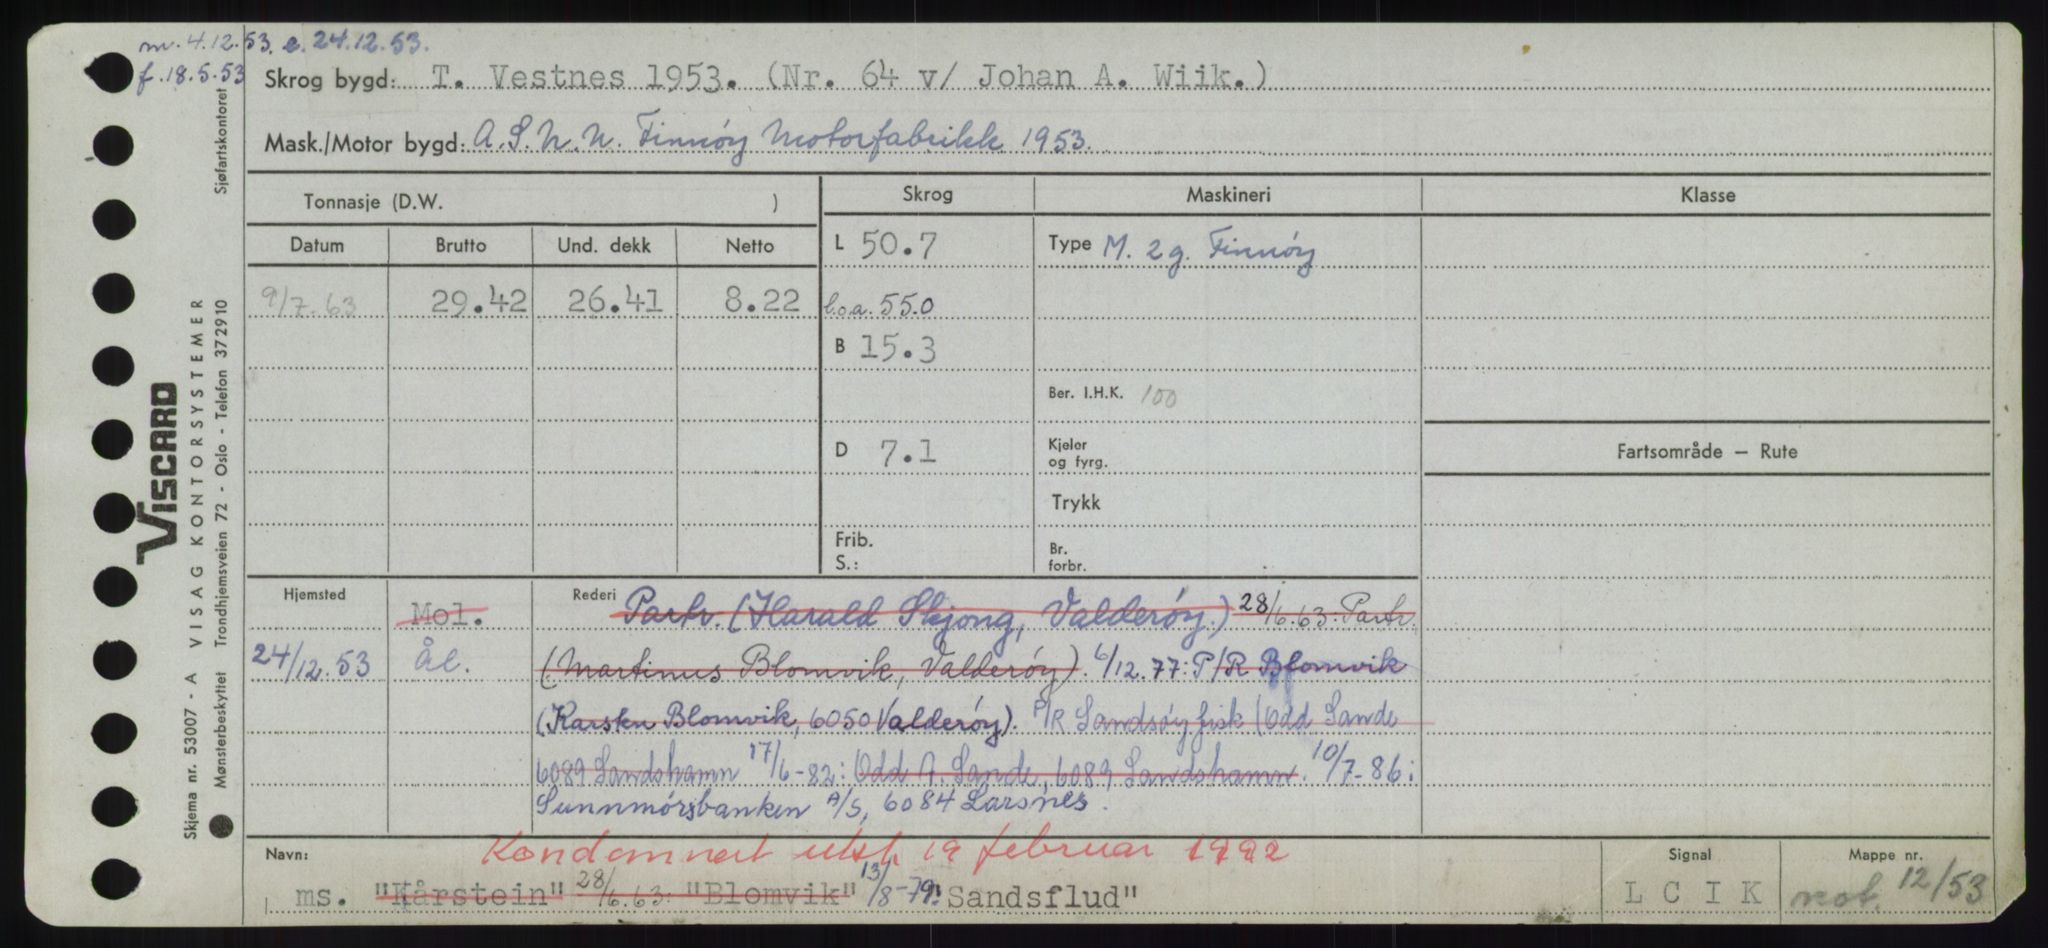 m. 4.12.53. e. 24.12.53.
f. 18.5.53
Skrog bygd: T. Vestnes 1953. (Nr. 64 v/ Johan A. Wiik.)
Mask./Motor bygd: A.S. N.N. Finnøy Motorfabrikk 1953.
Tonnasje (D.W. )
Skrog
Maskineri
Klasse
Datum
Brutto
Und. dekk
Netto
L 50.7
Type M. 2g. Finnøy
9/7.63
29.42
26.41
8.22
l.o.a. 55.0
B 15.3
Ber. I.H.K. 100
Fartsområde — Rute
D 7.1
Kjeler
og fyrg.
Trykk
Frib.
S.:
Br.
forbr.
Hjemsted
Mol.
Rederi
Partr. (Harald Skjong, Valderøy.) 28/6.63: Partr.
24/12.53
Ål.
(Martinus Blomvik, Valderøy). 6/12.77: P/R Blomvik
(Karsten Blomvik, 6050 Valderøy). P/R Sandsøyfisk (Odd Sande
6089 Sandshamn 17/6-82: Odd A. Sande, 6089 Sandshamn. 10/7-86:
Sunnmørsbanken A/S, 6084 Larsnes.
Navn:
Kondemnert utsl. 19 februar 1992
Signal
Mappe nr.
ms. "Kårstein" 28/6.63: "Blomvik" 13/8-79: "Sandsflud"
L C I K
not. 12/53
VISCARD
Skjema nr. 53007 - A VISAG KONTORSYSTEMER
Mønsterbeskyttet Trondhjemsveien 72 - Oslo - Telefon 372910 Sjøfartskontoret